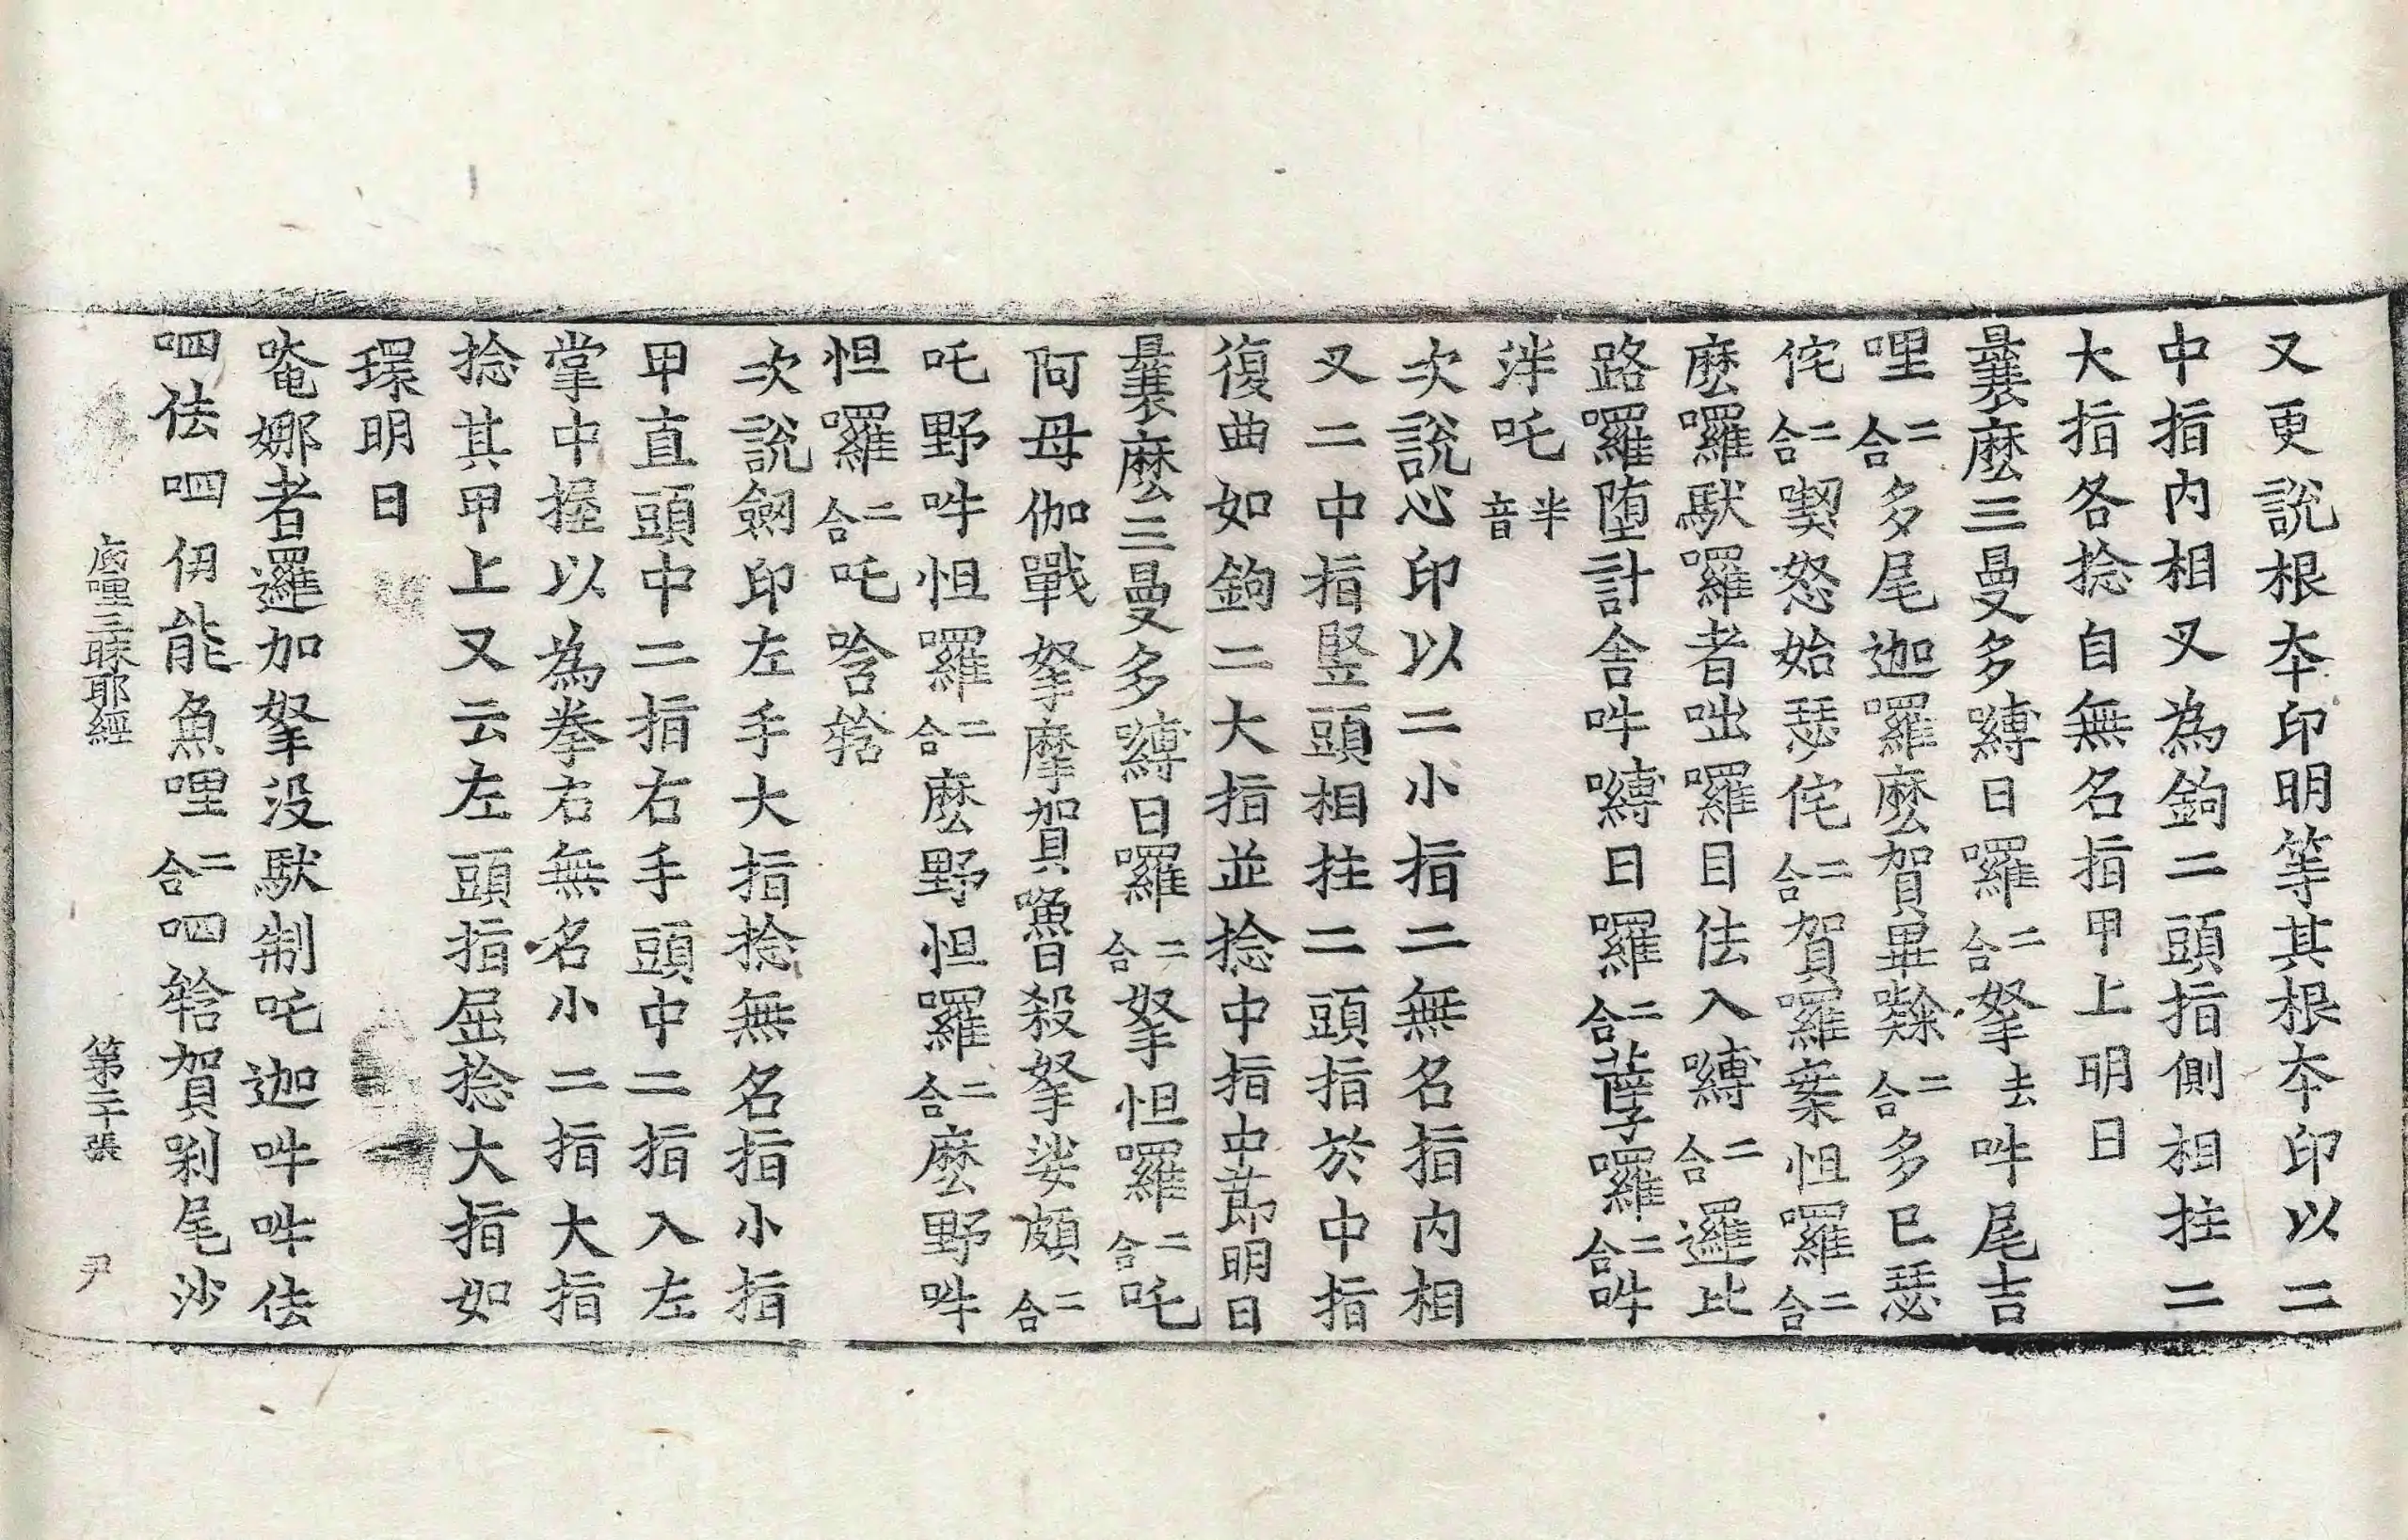 又更說根夲印明等其根夲印以二
中指内相叉為鉤二頭指側相拄二
大指各捻自無名指甲上明曰
曩麽三曼多嚩日囉二合拏去吽尾吉
哩二合多尾迦囉麽賀畢二合多巳瑟
侘二合喫怒始瑟侘二合賀囉案怛囉二合
麽囉馱囉者咄囉目佉入嚩二合邏比
路囉堕計舍吽嚩日囉二合薩囉二合吽
泮吒半音
次說心印以二小指二無名指内相
叉二中指竪頭相拄二頭指於中指
復曲如鉤二大指並捻中指中莭明曰
曩麽三曼多嚩日囉二合拏怛囉二合吒
阿母伽戰拏摩賀嚕殺拏娑頗二合
吒野吽怛囉二合麽野怛囉二合麽野吽
怛囉二合吒唅𤚥
次說劒印左手大指捻無名指小指
甲直頭中二指右手頭中二指入左
掌中握以為拳右無名小二指大指
捻其甲上又云左頭指屈捻大指如
環明曰
唵娜者邏加拏没馱制吒迦吽吽佉
呬佉呬伊能魚哩二合呬𤚥賀剎尾沙
底哩三昧耶經 第二十張 尹